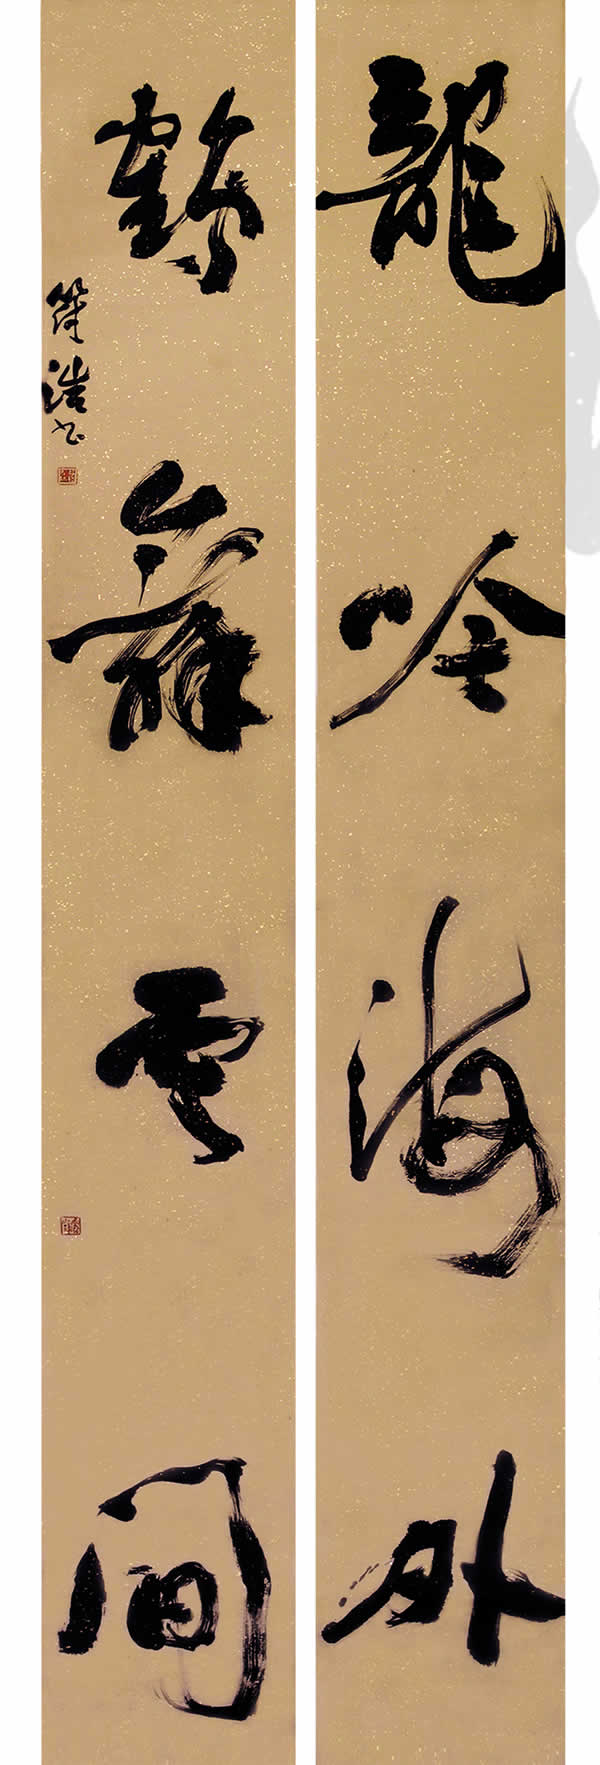 龍吟海外
鶴舞雲間
符浩书